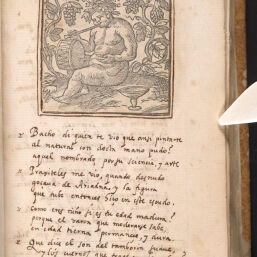 Bacho di quien te vio que ansi pintarte
al natural con docta mano pudo?
aquel nombrado por su sciencia, y arte
Praxiteles me vio, quando desnudo
gozava de Ariadna, y la figura
que alli entonces hizo en este escudo.
Como eres niño si es tu edad madura?
porque el varon que moderarse sabe
en edad tierna permanece, y dura.
Que dize el son del tamborin suave,
y los cuernos que